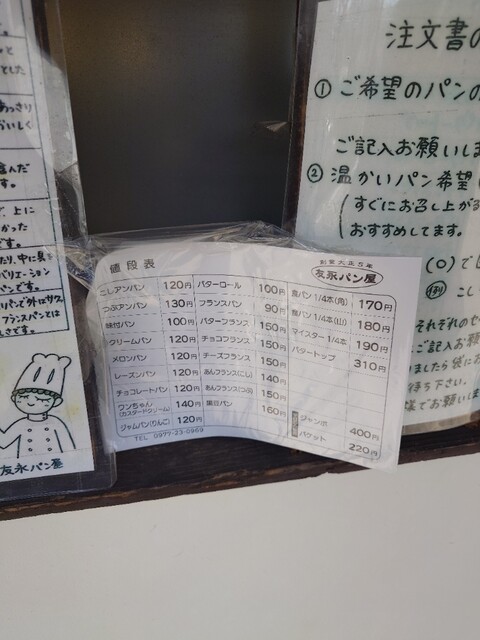 値段表
創業大正5年
友永パン屋
こしアンパン 120円
つぶアンパン 130円
味付パン 100円
クリームパン 120円
メロンパン 120円
レーズンパン 120円
チョコレートパン 120円
ワンちゃん
(カスタードクリーム) 140円
ジャムパン(りんご) 120円
バターロール 100円
フランスパン 90円
バターフランス 150円
チョコフランス 150円
チーズフランス 150円
あんフランス(こし) 140円
あんフランス(つぶ) 150円
黒豆パン 160円
食パン 1/4本(角) 170円
食パン 1/4本(山) 180円
マイスター 1/4本 190円
バタートップ 310円
ジャンボ 400円
バケット 220円
TEL 0977-23-0969
注文書の
① ご希望のパンの
ご記入お願いしま
② 温かいパン希望
(すぐにお召し上がる
おすすめしてます。
(○)で
例 こし
それぞれの
ご記入お願
ましたら袋にお
待ち下さい。
でお願いしま
とした
あっさり
おいしく
す。
上に
かった
です。
中に具を
バリエーション
パンです。
パンで外はサク。
フランスパンとは
しさです。
友永パン屋